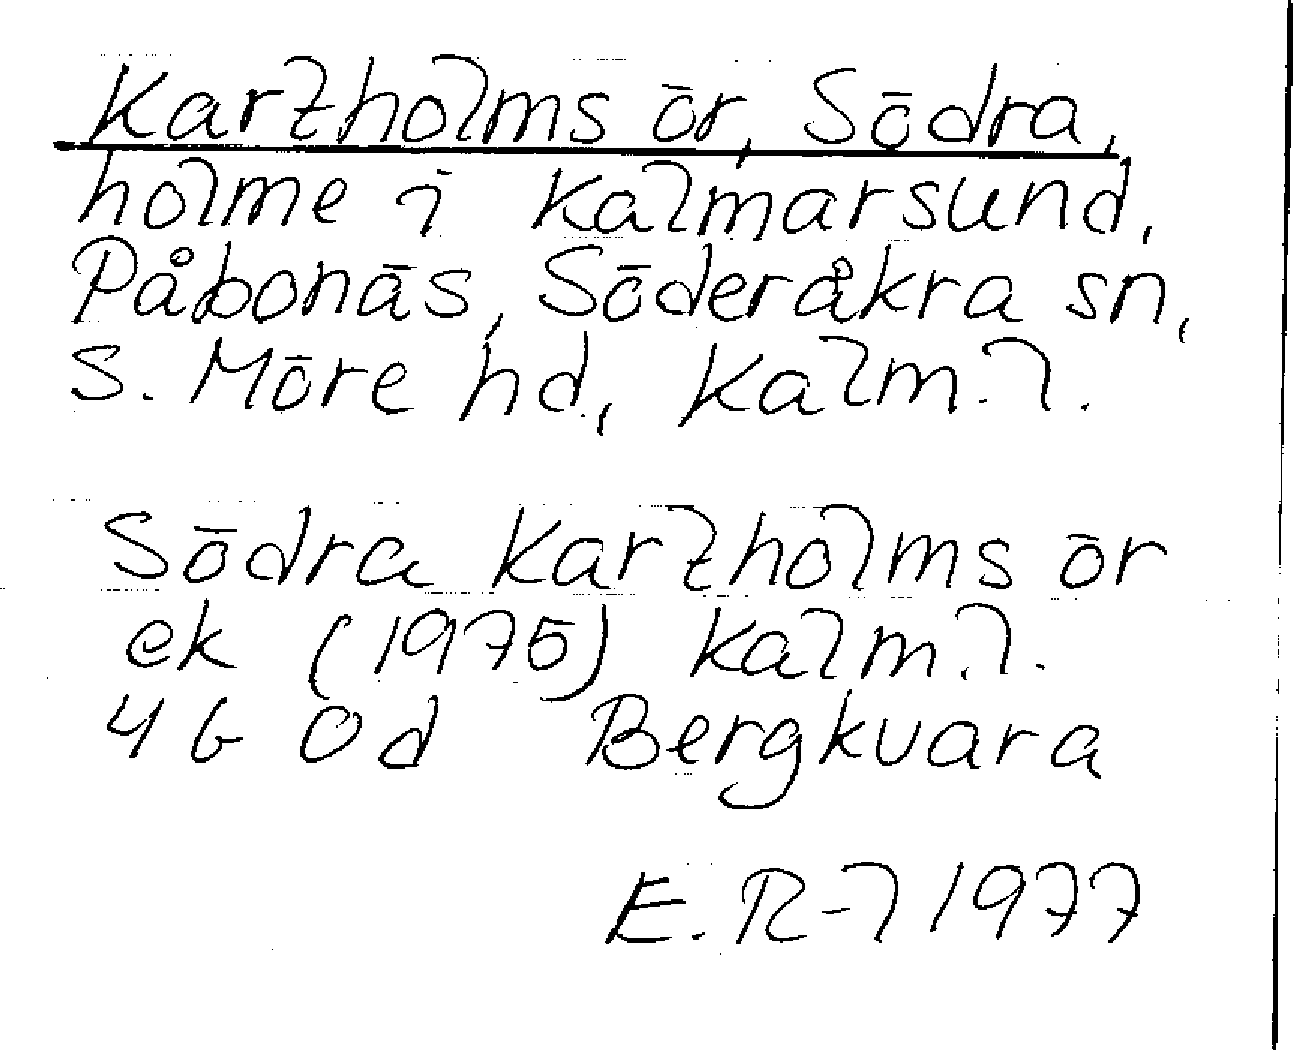 Karzholms ör, Södra,
holme i Kalmarsund,
Påbonäs, Söderåkra sn,
S. Möre hd, Kalm. l.
Södra Karzholms ör
ek (1975) Kalm. l.
4 G 0d Bergkvara
E. R-l 1977